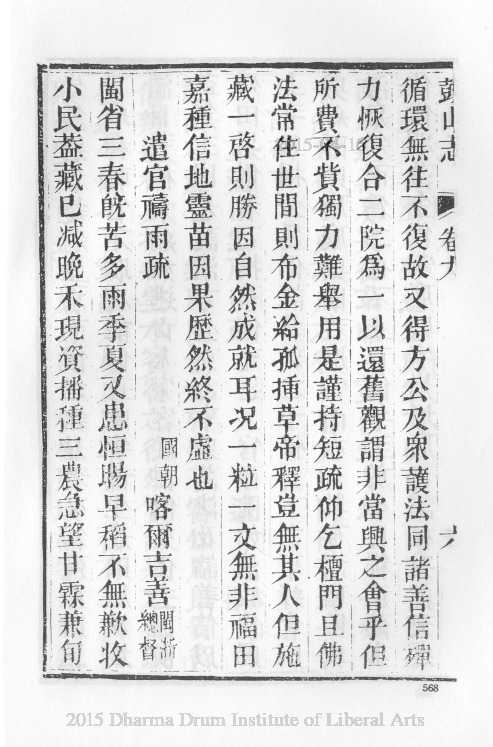 鼓山志 卷九 六
循環無往不復故又得方公及衆護法同諸善信殫
力恢復合二院爲一以還舊觀謂非當興之會乎但
所費不貲獨力難舉用是謹持短疏仰乞檀門且佛
法常住世間則布金給孤挿草帝釋豈無其人但施
藏一啓則勝因自然成就耳况一粒一文無非福田
嘉種信地靈苗因果歷然終不虛也
遣官禱雨疏 國朝 喀爾吉善 閩浙總督
閩省三春旣苦多雨季夏又患恒暘早稻不無歉收
小民蓋藏已减晚禾現資播種三農急望甘霖兼旬
568
2015 Dharma Drum Institute of Liberal Arts